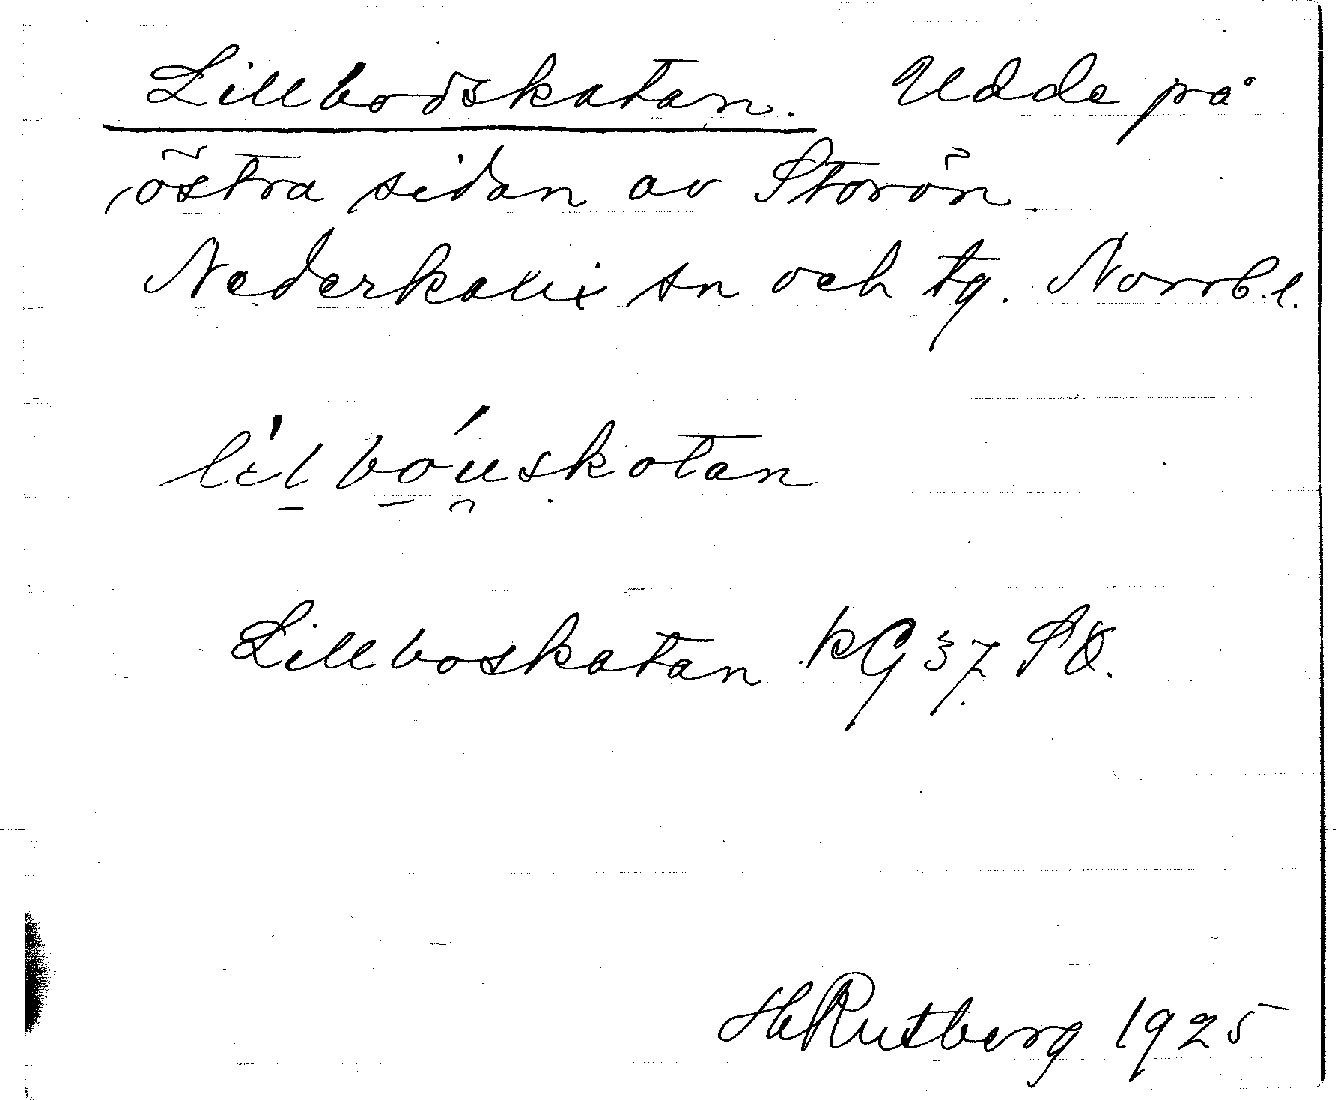 Lillbodskatan. Udde på
östra sidan av Storön
Nederkalix sn och tg. Norrb. l.
Lillboskatan kG 37 SO.
HRutberg 1925